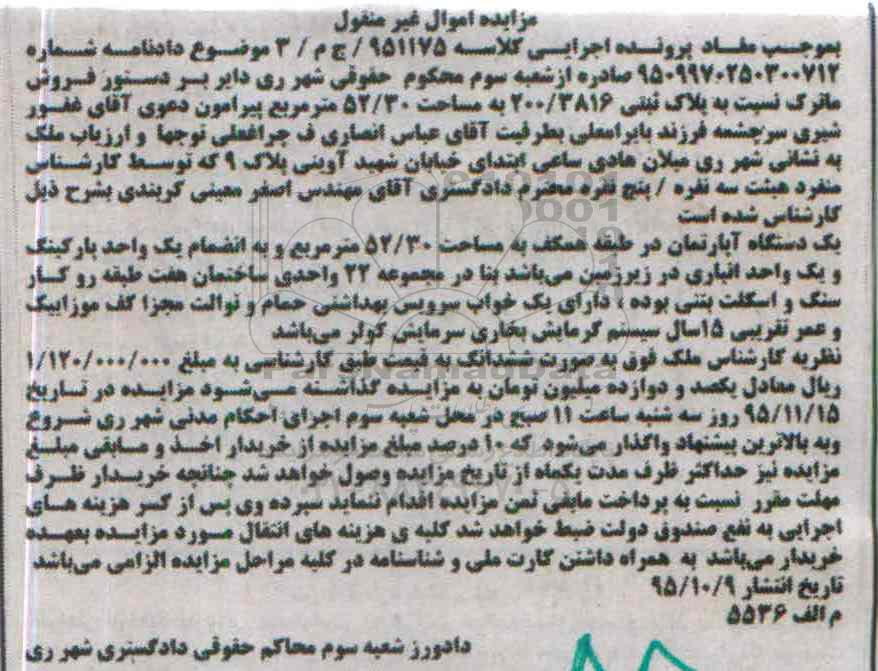 مزایده اموال غیر منقول
بموجب مفاد پرونده اجرایی کلاسه ۹۵۱۱۷۵ / ج م / ۳ موضوع دادنامه شماره
۹۵۰۹۹۷۰۲۵۰۳۰۰۷۱۲ صادره ازشعبه سوم محکوم حقوقی شهر ری دایر بر دستور فروش
ماترک نسبت به پلاک ثبتی ۲۰۰/۳۸۱۶ به مساحت ۵۲/۳۰ مترمربع پیرامون دعوی آقای غفور
شیری سرچشمه فرزند بابرامعلی بطرفیت آقای عباس انصاری ف چراغعلی توجها و ارزیاب ملک
به نشانی شهر ری میلان هادی ساعی ابتدای خیابان شهید آوینی پلاک ۹ که توسط کارشناس
منفرد هیئت سه نفره / پنج نفره محترم دادگستری آقای مهندس اصغر معینی کربندی بشرح ذیل
کارشناس شده است
یک دستگاه آپارتمان در طبقه همکف به مساحت ۵۲/۳۰ مترمربع و به انضمام یک واحد پارکینگ
و یک واحد انباری در زیرزمین می‌باشد بنا در مجموعه ۲۲ واحدی ساختمان هفت طبقه رو کار
سنگ و اسکلت بتنی بوده ، دارای یک خواب سرویس بهداشتی حمام و توالت مجزا کف موزاییک
و عمر تقریبی ۱۵سال سیستم گرمایش بخاری سرمایش کولر می‌باشد
نظریه کارشناس ملک فوق به صورت ششدانگ به قیمت طبق کارشناسی به مبلغ ۱/۱۲۰/۰۰۰/۰۰۰
ریال معادل یکصد و دوازده میلیون تومان به مزایده گذاشته می‌شود مزایده در تاریخ
۹۵/۱۱/۱۵ روز سه شنبه ساعت ۱۱ صبح در محل شعبه سوم اجرای احکام مدنی شهر ری شروع
وبه بالاترین پیشنهاد واگذار می‌شود که ۱۰ درصد مبلغ مزایده از خریدار اخذ و مابقی مبلغ
مزایده نیز حداکثر ظرف مدت یکماه از تاریخ مزایده وصول خواهد شد چنانچه خریدار ظرف
مهلت مقرر نسبت به پرداخت مابقی ثمن مزایده اقدام ننماید سپرده وی پس از کسر هزینه های
اجرایی به نفع صندوق دولت ضبط خواهد شد کلیه ی هزینه های انتقال مورد مزایده بعهده
خریدار می‌باشد به همراه داشتن کارت ملی و شناسنامه در کلیه مراحل مزایده الزامی می‌باشد
تاریخ انتشار ۹۵/۱۰/۹
م الف ۵۵۳۶
دادورز شعبه سوم محاکم حقوقی دادگستری شهر ری
ParsNamadData